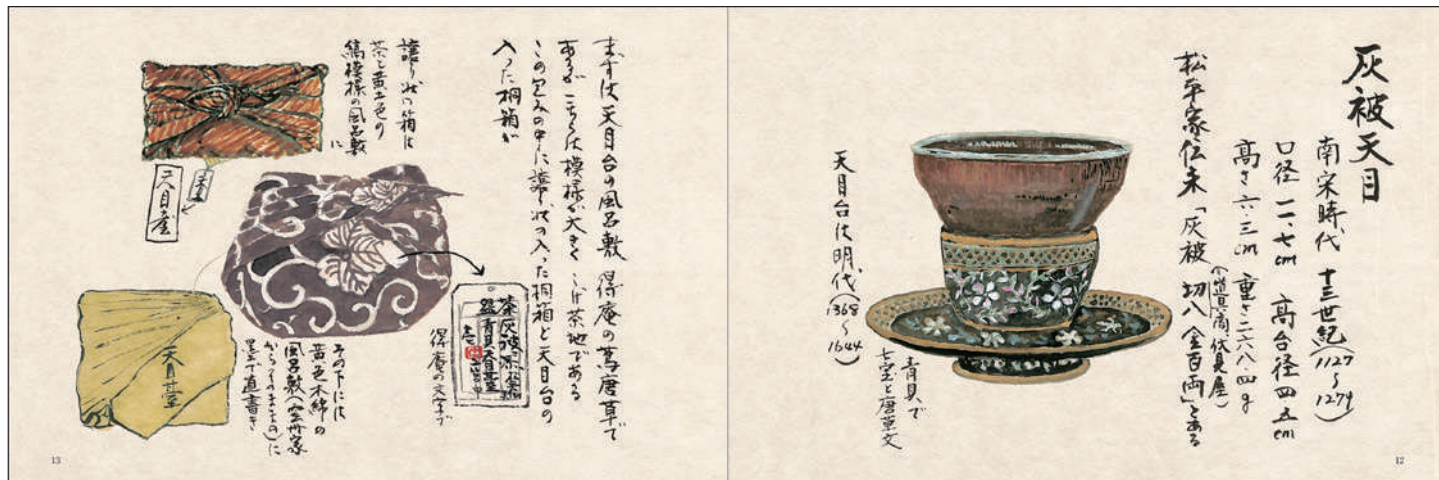 灰被天目
南宋時代 十三世紀(1127〜1279)
口径 一一・七cm 高台径 四・五cm
高さ 六・三cm 重さ 二六八・四g
松平家伝来「灰被 切八 金百両」とある
(道具商 伏見屋)
天目台は明代(1368〜1644)
青貝で
七宝と唐草文
12
まずは天目台の風呂敷 得庵の蔦唐草で
あるが こちらは模様が大きく こげ茶地である
この包みの中に譲り状の入った桐箱と天目台の
入った桐箱が
譲り状の箱は
茶と黄土色の
縞模様の風呂敷
に
天目臺
得庵の文字で
天目臺
その下には
黄色木綿の
風呂敷(雲州家
からそのままのもの)に
墨で直書き
13